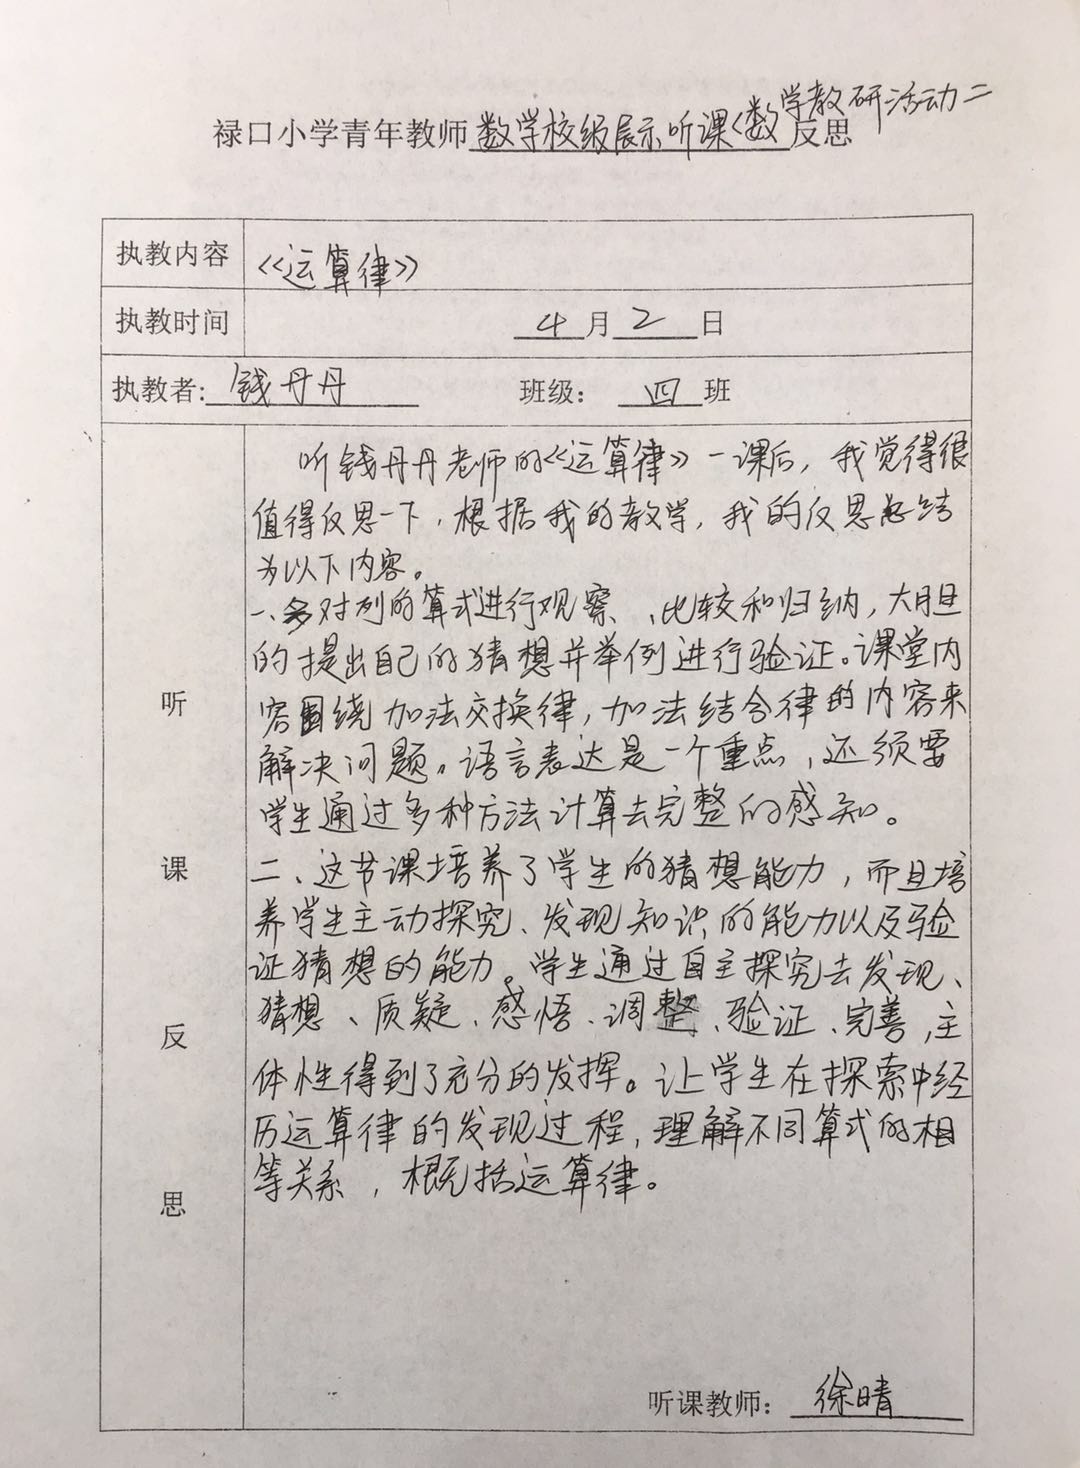 禄口小学青年教师数学校级展示听课<数学教研活动二反思
执教内容 《运算律》
执教时间 4月2日
执教者:钱丹丹 班级:四班
听课反思
听钱丹丹老师的《运算律》一课后,我觉得很
值得反思一下,根据我的教学,我的反思总结
为以下内容。
一、多对列的算式进行观察、比较和归纳,大胆
的提出自己的猜想并举例进行验证。课堂内
容围绕加法交换律,加法结合律的内容来
解决问题。语言表达是一个重点,还须要
学生通过多种方法计算去完整的感知。
二、这节课培养了学生的猜想能力,而且培
养学生主动探究、发现知识的能力以及验
证猜想的能力。学生通过自主探究去发现、
猜想、质疑、感悟、调整、验证、完善,主
体性得到了充分的发挥。让学生在探索中经
历运算律的发现过程,理解不同算式的相
等关系,概括运算律。
听课教师:徐晴